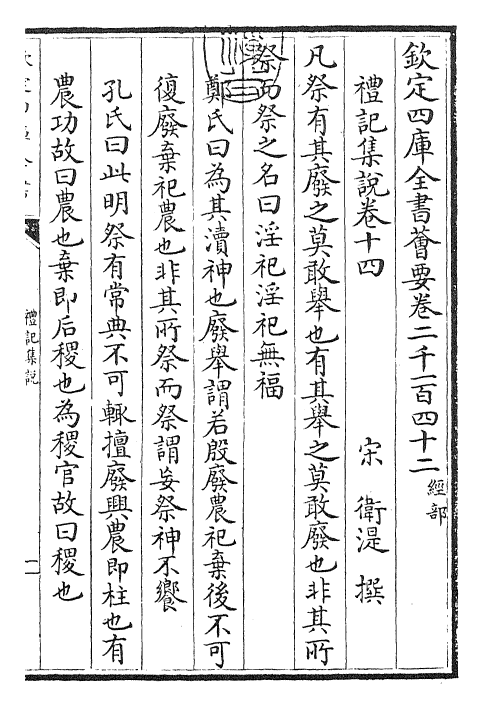 欽定四庫全書薈要卷二千一百四十二 經部
禮記集說卷十四
宋 衛湜 撰
凡祭有其廢之莫敢舉也有其舉之莫敢廢也非其所
祭而祭之名曰淫祀淫祀無福
鄭氏曰為其瀆神也廢舉謂若殷廢農祀棄後不可
復廢棄祀農也非其所祭而祭謂妄祭神不饗
孔氏曰此明祭有常典不可輒擅廢興農即柱也有
農功故曰農也棄即后稷也為稷官故曰稷也
禮記集説
一